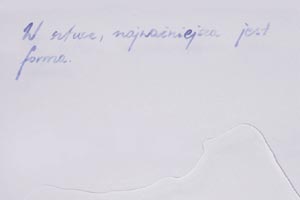 W sztuce, najważniejsza jest
forma.